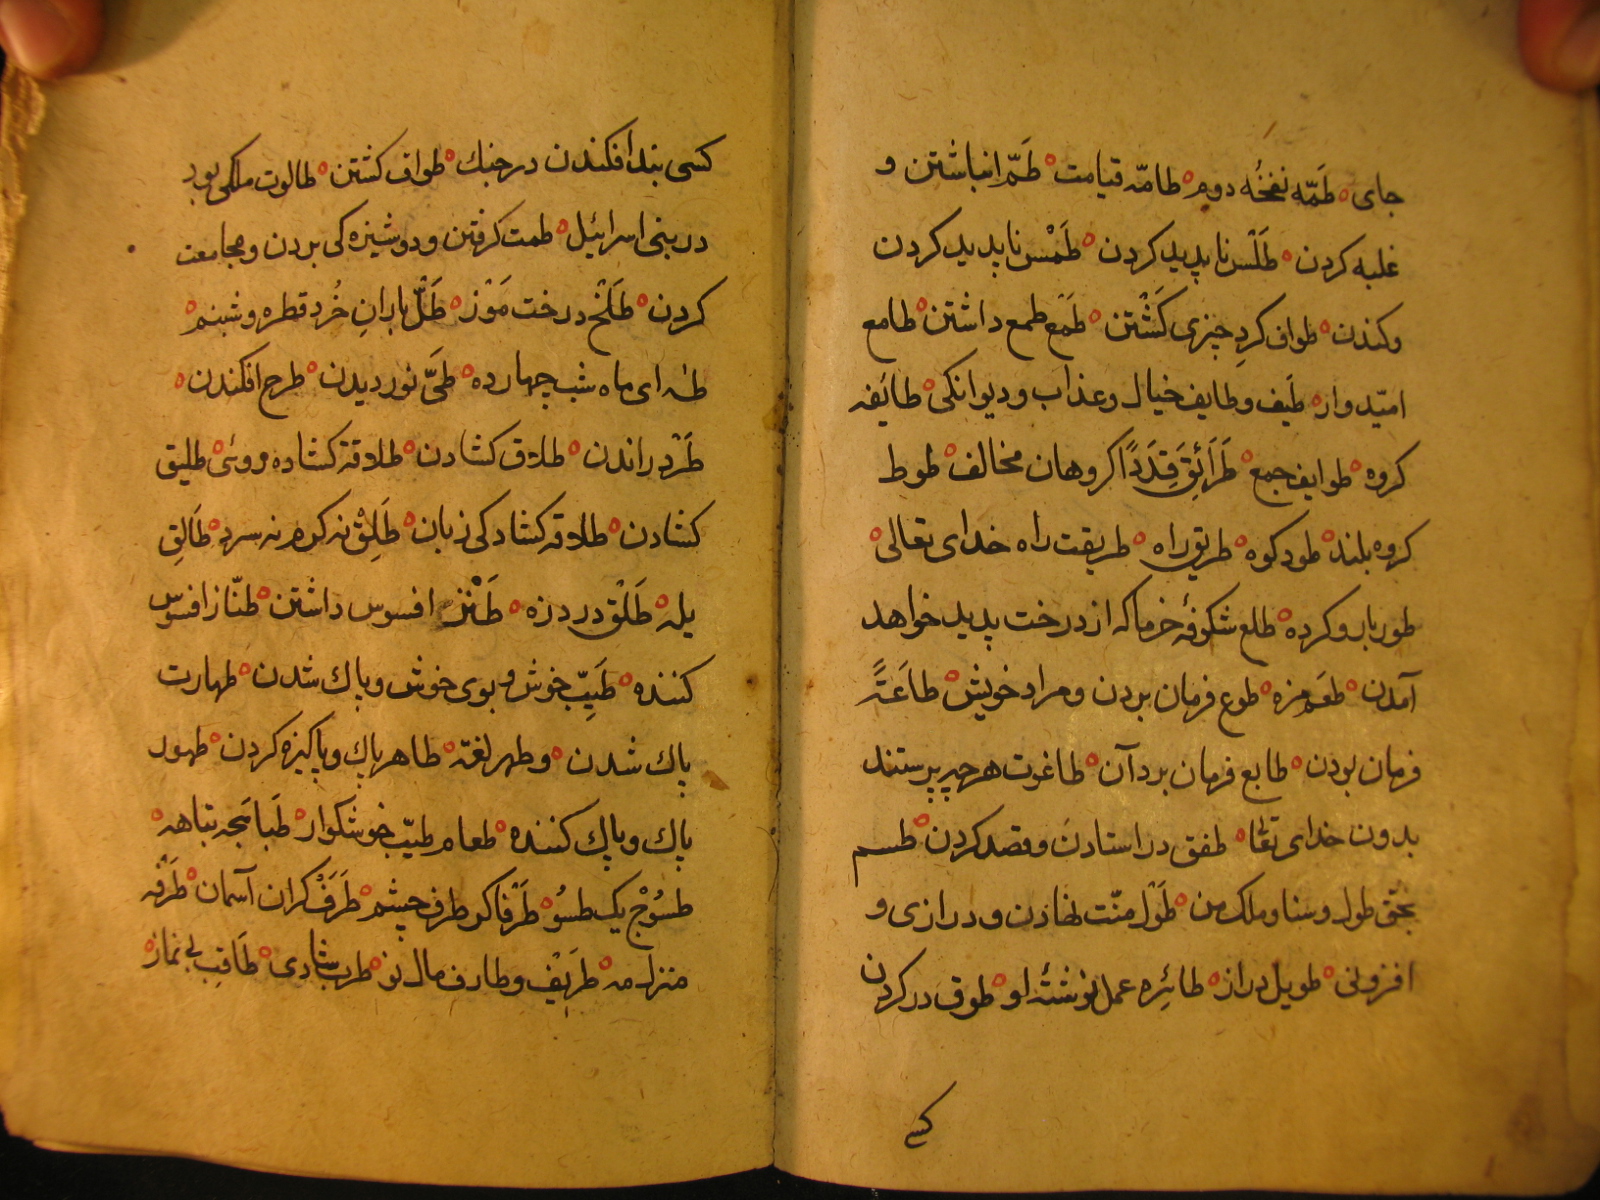 جای ° طَمّه نفخهٔ دوم ° طامّه قیامت ° طَمّ انباشتن و
غلبه کردن ° طَلْس ناپدید کردن ° طَمْس ناپدید کردن
و کندن ° طواف کردِ چیزی کَشْتن ° طَمَع طمع داشتن ° طامع
امیّدوار ° طیف و طایف خیال و عذاب و دیوانکی ° طائفه
کروه ° طوایف جمع ° طَرَائِقَ قِدَدًا کروهان مخالف ° طوط
کروه بلند ° طود کوه ° طریق راه ° طریقت راه خدای تعالی °
طور بار و کرده ° طلع شکوفهٔ خرما که از درخت پدید خواهد
آمدن ° طعم مزه ° طوع فرمان بردن و مراد خویش ° طاعَةً
فرمان بودن ° طایع فرمان بردآن ° طاغوت هرچه پرستند
بدون خدای تعا ° طفق در استادن و قصد کردن ° طسم
بحق طول و سنا و ملک من ° طَوْل منّت نهادن و درازی و
افزونی ° طویل دراز ° طائِره عمل نوشتهٔ او ° طوق در کردن
کسی
کسی بند افکندن در جنك ° طواف کشتن ° طالوت ملکی بود
در بنی اسرائیل ° طمث کرفتن و دوشیزه کی بردن و مجامعت
کردن ° طَلْح درخت مَوْز ° طَلّ بارانِ خُرد قطره و شبنم °
طه ای ماه شب چهارده ° طَیّ نوردیدن ° طرح افکندن °
طَرْد راندن ° طلاق کشادن ° طلاقة کشاده رویی ° طلیق
کشادن ° طلاقه کشادکی زبان ° طَلِقْ نه کرم نه سرد ° طَالِق
یله ° طَلْق درد زه ° طَنْز افسوس داشتن ° طنّاز افسوس
کننده ° طَیِّب خوش و بوی خوش و پاك شدن ° طهارت
پاك شدن ° و طهر لغة ° طاهر پاك و پاکیزه کردن ° طهور
پاك و پاك کننده ° طعام طیّب خوشکوار ° طَبامَجه تباهه °
طسُوْج یک طسُو ° طَرْفا کز طرف چشم ° طَرَفْ کران آسمان ° طَرْفه
منزل مه ° طَریْف و طارف مال نو ° طرب شادی ° طَاقِب بی نماز °